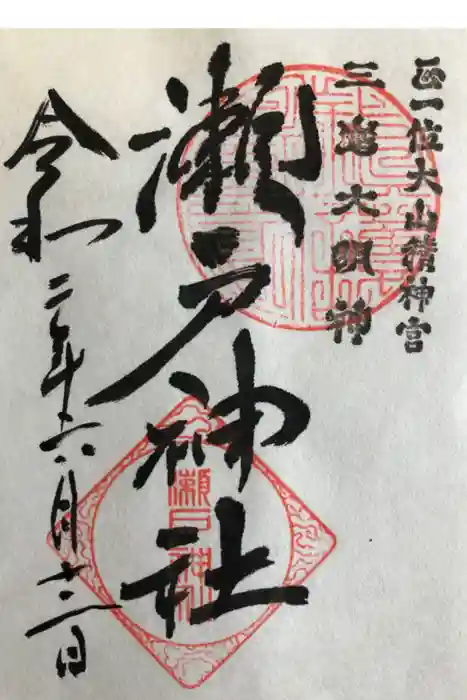 正一位大山積神宮
三島大明神
瀬戸神社
令和二年六月十二日
瀬戸神社